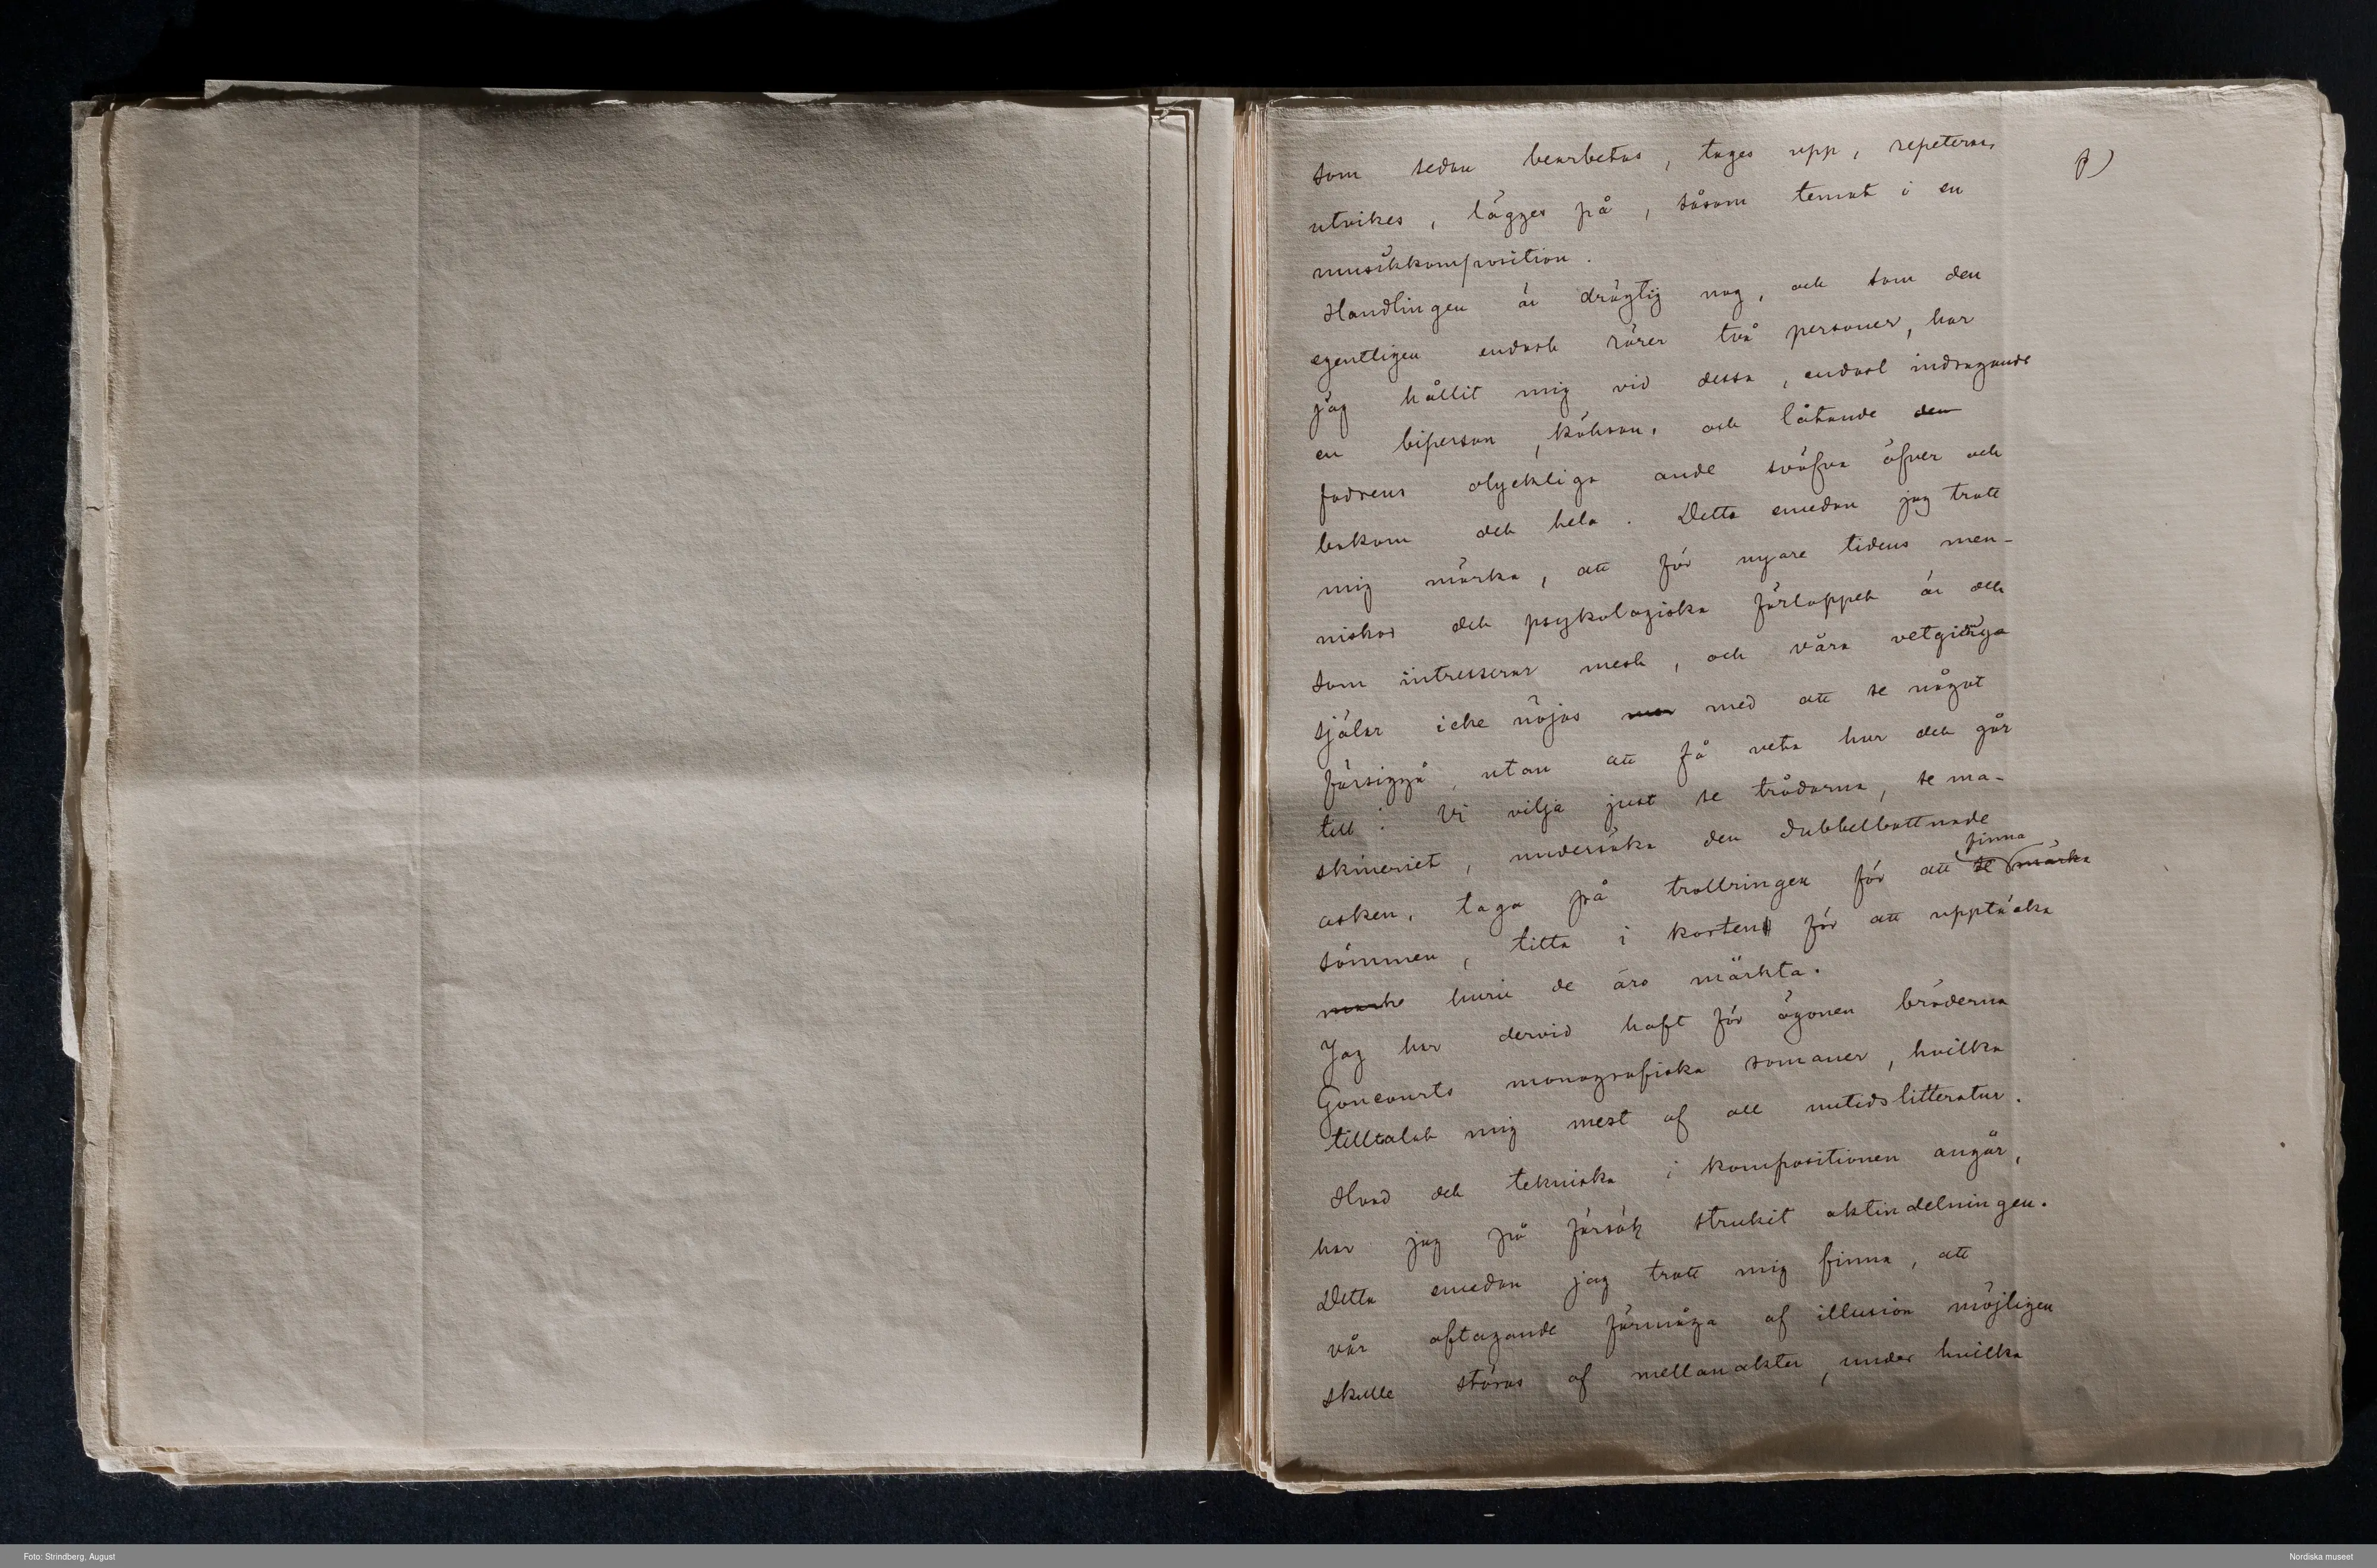 som sedan bearbetas, tages upp, repeteras,
utvikes, lägges på, såsom temat i en
musikkomposition.
Handlingen är dräglig nog, och som den
egentligen endast rörer två personer, har
jag hållit mig vid dessa, endast indragande
en biperson, köksan, och låtande den
fadrens olyckliga ande sväfva öfver och
bakom det hela. Detta emedan jag trott
mig märka, att för nyare tidens men-
niskor det psykologiska förloppet är det
som intresserar mest, och våra vetgiriga
själar icke nöjas med att se något
försiggå utan att få veta hur det går
till! Vi vilja just se trådarna, se ma-
skineriet, undersöka den dubbelbottnade
asken, taga på trollringen för att se märka
finna
sömmen, titta i korten för att upptäcka
huru de äro märkta.
Jag har dervid haft för ögonen bröderna
Goncourts monografiska romaner, hvilka
tilltalat mig mest af all nutidslitteratur.
Hvad det tekniska i kompositionen angår,
har jag på försök strukit aktindelningen.
Detta emedan jag trott mig finna, att
vår aftagande förmåga af illusion möjligen
skulle störas af mellanakter, under hvilka
Foto: Strindberg, August
Nordiska museet